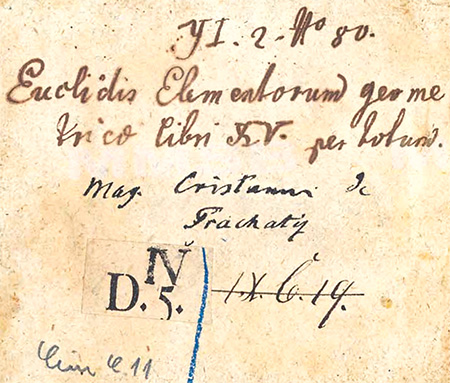 YI. 2. No 80.
Euclidis Elementorum geome
trice libri XV. per totum.
Mag. Cristanni de
Prachatiз
IV
D. 5.
IX. C. 19.
C 11